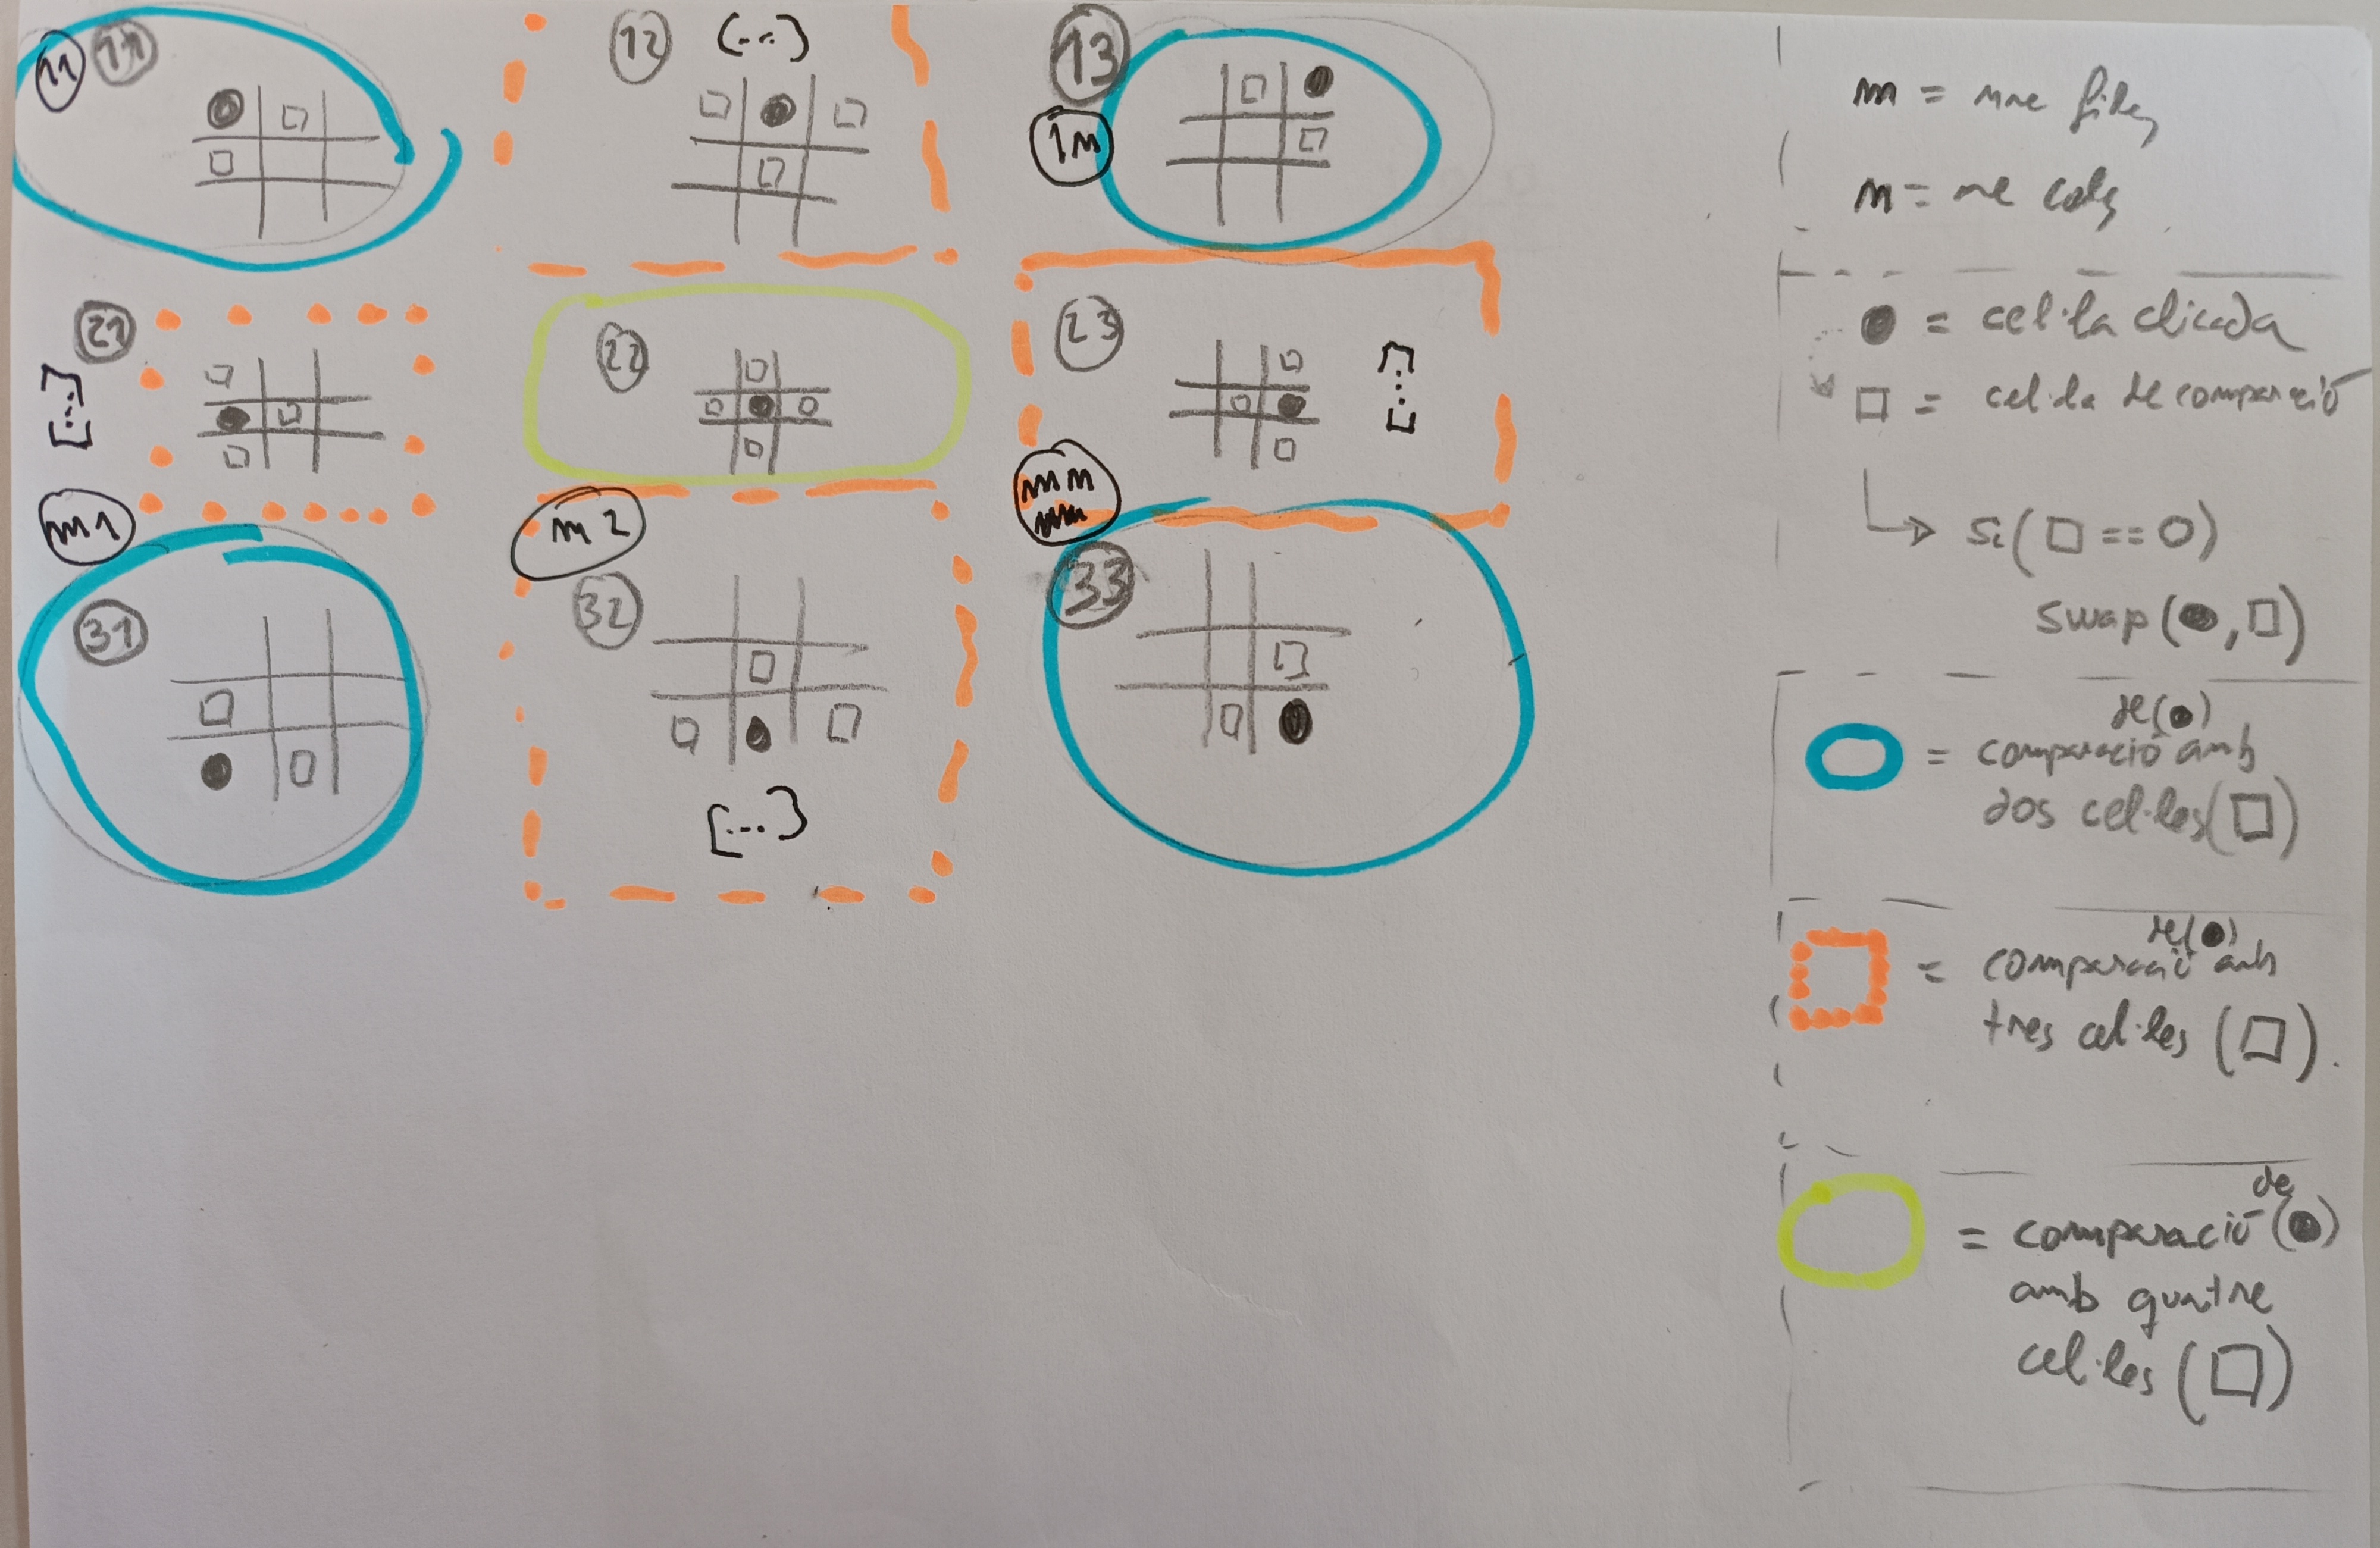 11 11
12 (...)
13
1n
21
[...]
22
23
[...]
m1
m2
mn
31
32
33
[...]
m = nre files
n = nre cols
● = cel·la clicada
□ = cel·la de comparació
↳ si(□ == 0)
swap(●,□)
de(●)
= comparació amb
dos cel·les(□)
de(●)
= comparació amb
tres cel·les (□).
de
= comparació (●)
amb quatre
cel·les (□)